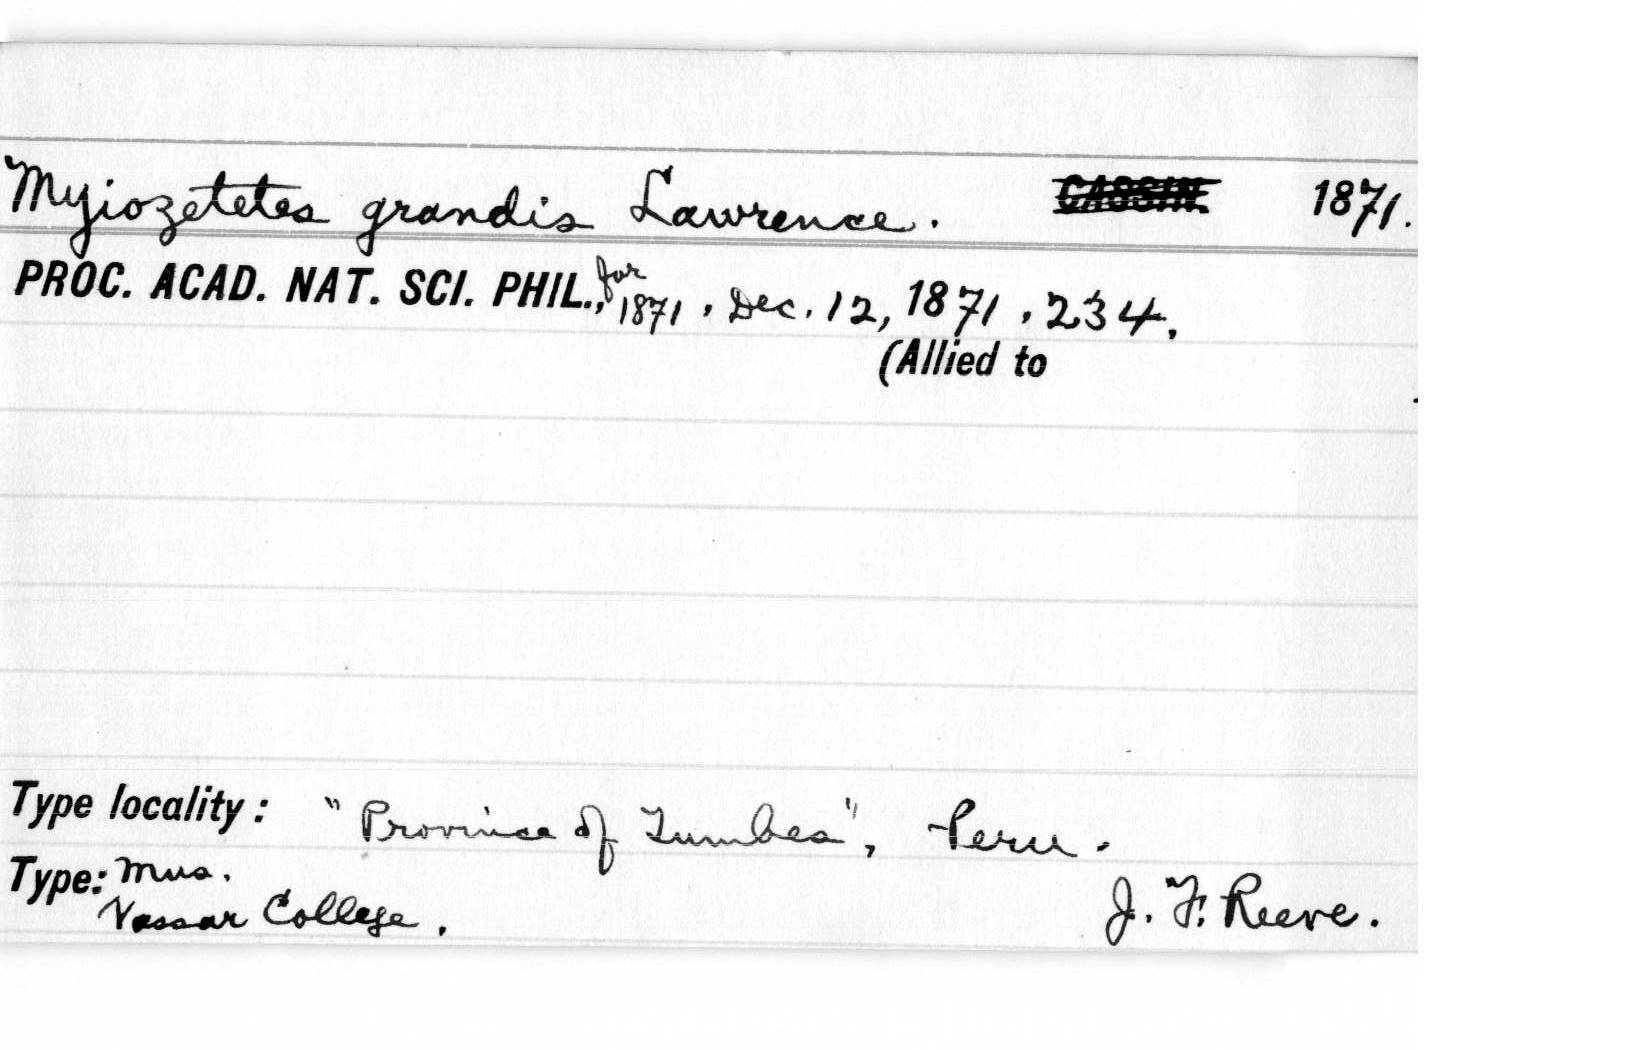 Myiozetetes grandis Lawrence. CASSIN. 1871.
PROC. ACAD. NAT. SCI. PHIL., for 1871, Dec. 12, 1871, 234.
(Allied to
Type locality: "Province of Tumbes", Peru.
Type: Mus.
Vassar College. J. F. Reeve.